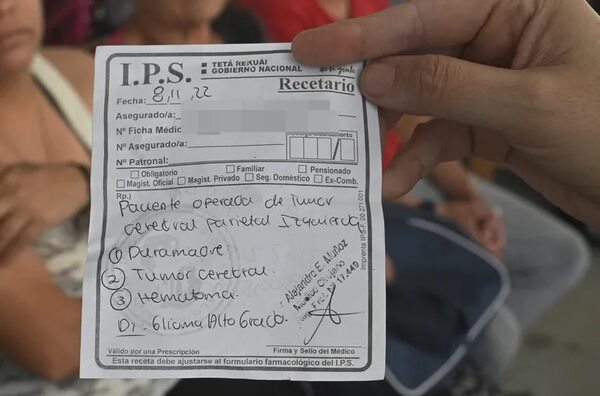 I.P.S. TETÃ REKUÁI
GOBIERNO NACIONAL
Recetario
Fecha: 8,11,22
Asegurado/a:
Nº Ficha Médic
Nº Asegurado/a:
Nº Patronal:
Obligatorio Familiar Pensionado
Magist. Oficial Magist. Privado Seg. Doméstico Ex-Comb.
Rp.)
Paciente operada de tumor
cerebral parietal Izquierdo
① Duramadre
② Tumor cerebral.
③ Hematoma.
D: Glioma Alto Grado
Alejandro E. Muñoz
Médico Cirujano
17.449
Imprenta I.P.S. F. 00 271 001
Válido por una Prescripción Firma y Sello del Médico
Esta receta debe ajustarse al formulario farmacológico del I.P.S.